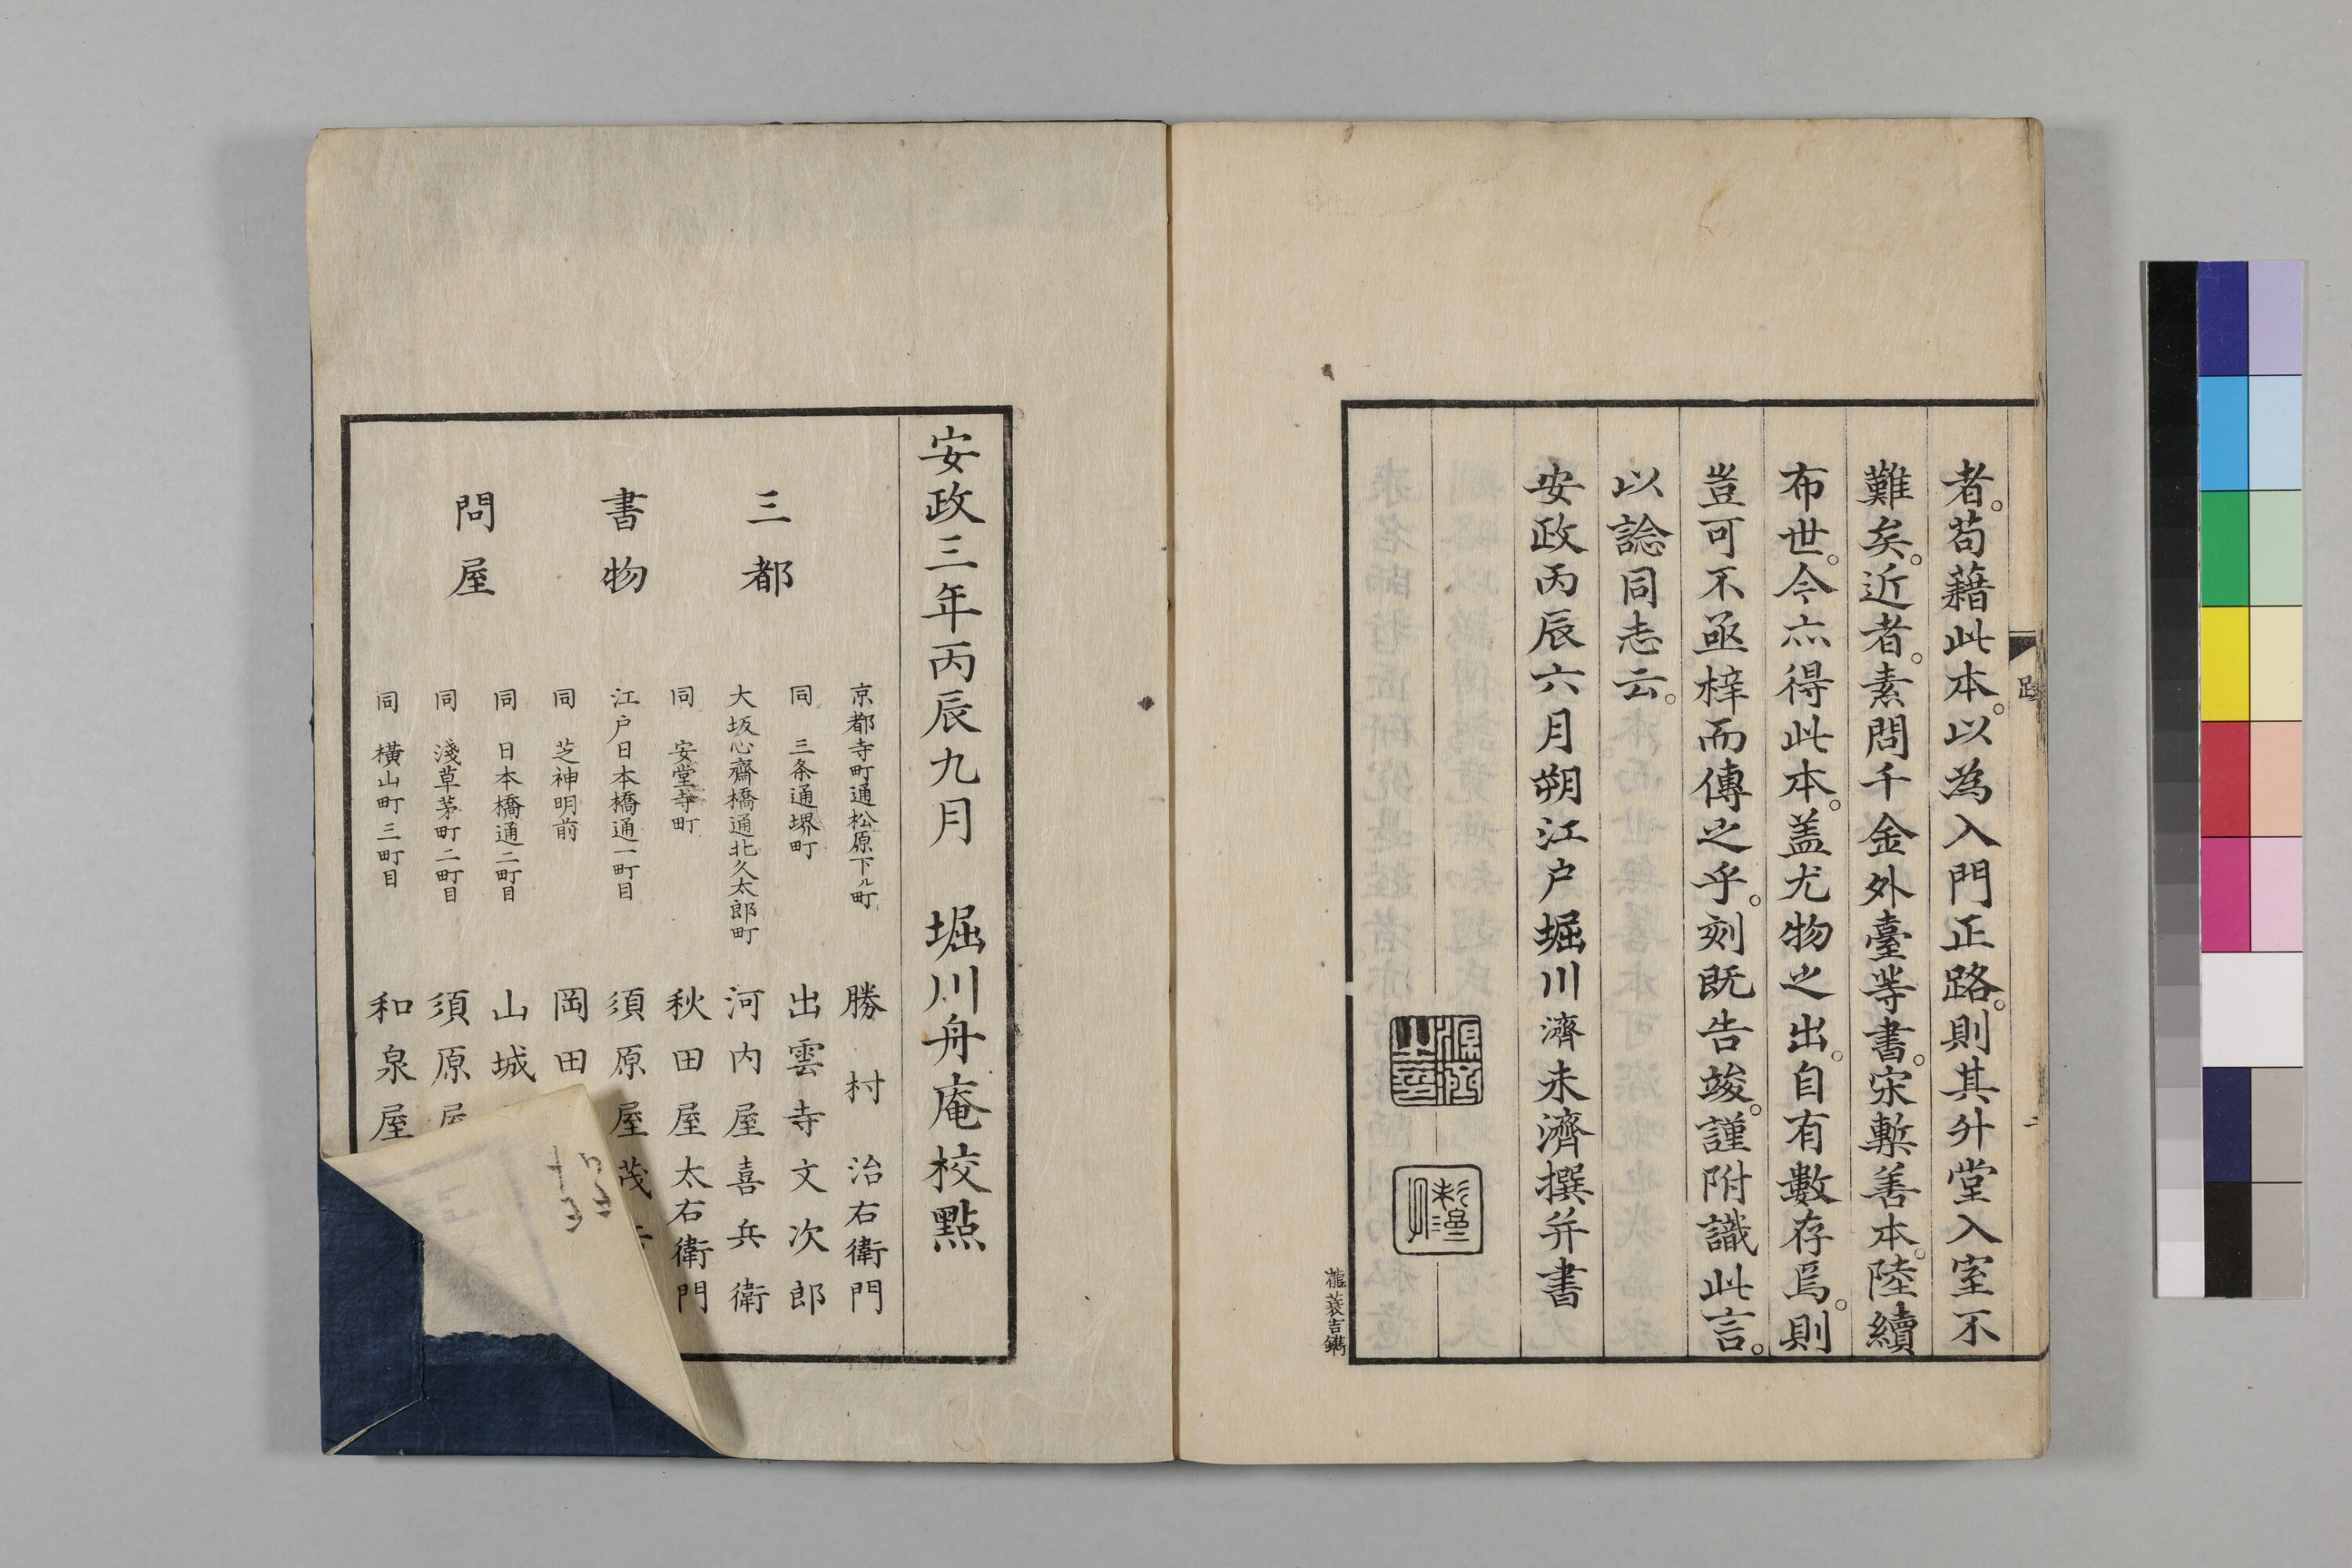 者。苟藉此本。以為入門正路。則其升堂入室不
難矣。近者。素問千金外臺等書。宋槧善本。陸續
布世。今亦得此本。盖尤物之出。自有數存焉。則
豈可不亟梓而傳之乎。刻既告竣。謹附識此言。
以諗同志云。
安政丙辰六月朔江戸堀川濟未濟撰并書
跋
二
安政三年丙辰九月　堀川舟庵校點
三都
書物
問屋
京都寺町通松原下ル町　勝村治右衛門
同　三条通堺町　出雲寺文次郎
大坂心齋橋通北久太郎町　河内屋喜兵衛
同　安堂寺町　秋田屋太右衛門
江戸日本橋通一町目　須原屋茂
同　芝神明前　岡田
同　日本橋通二町目　山城
同　淺草茅町二町目　須原屋
同　横山町三町目　和泉屋